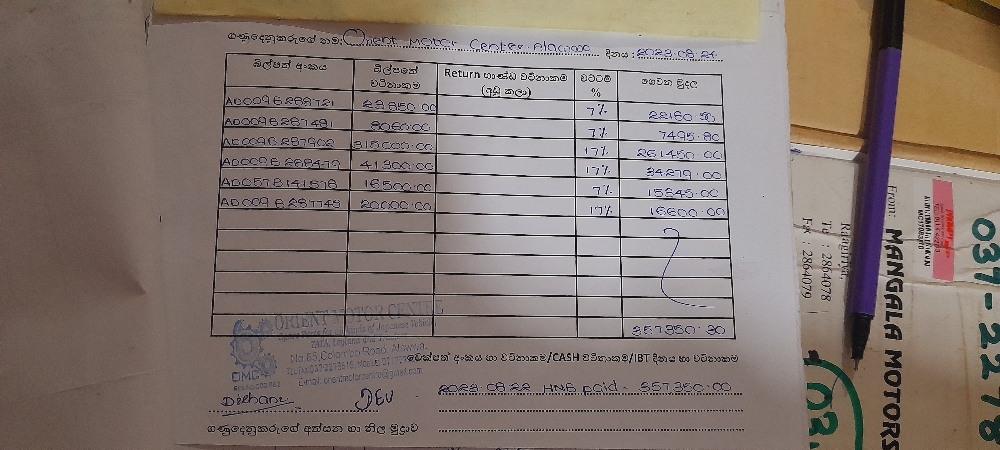 ගණුදෙනුකරුගේ නම: Orient Motor Center-Alawwa දිනය : 2023.08.24
බිල්පත් අංකය බිල්පතේ වටිනාකම Return භාණ්ඩ වටිනාකම (අඩු කලා) වට්ටම් % ගෙවන මුදල
AD0096288721 23850.00 7% 22180.50
AD0096287481 8060.00 7% 7495.80
AD0096287902 315000.00 17% 261450.00
AD0096288479 41300.00 17% 34279.00
AD0578141578 16500.00 7% 15345.00
AD0096287745 20000.00 17% 16600.00
357350.30
ORIENT MOTOR CENTRE
No.85, Colombo Road, Alawwa.
OMC
චෙක්පත් අංකය හා වටිනාකම/CASH වටිනාකම/IBT දිනය හා වටිනාකම
2023.08.22 HNB paid - 357350.00
ගණුදෙනුකරුගේ අත්සන හා නිල මුද්‍රාව
From: MANGALA MOTORS
Tel : 2864078
Fax : 2864079
037-2278